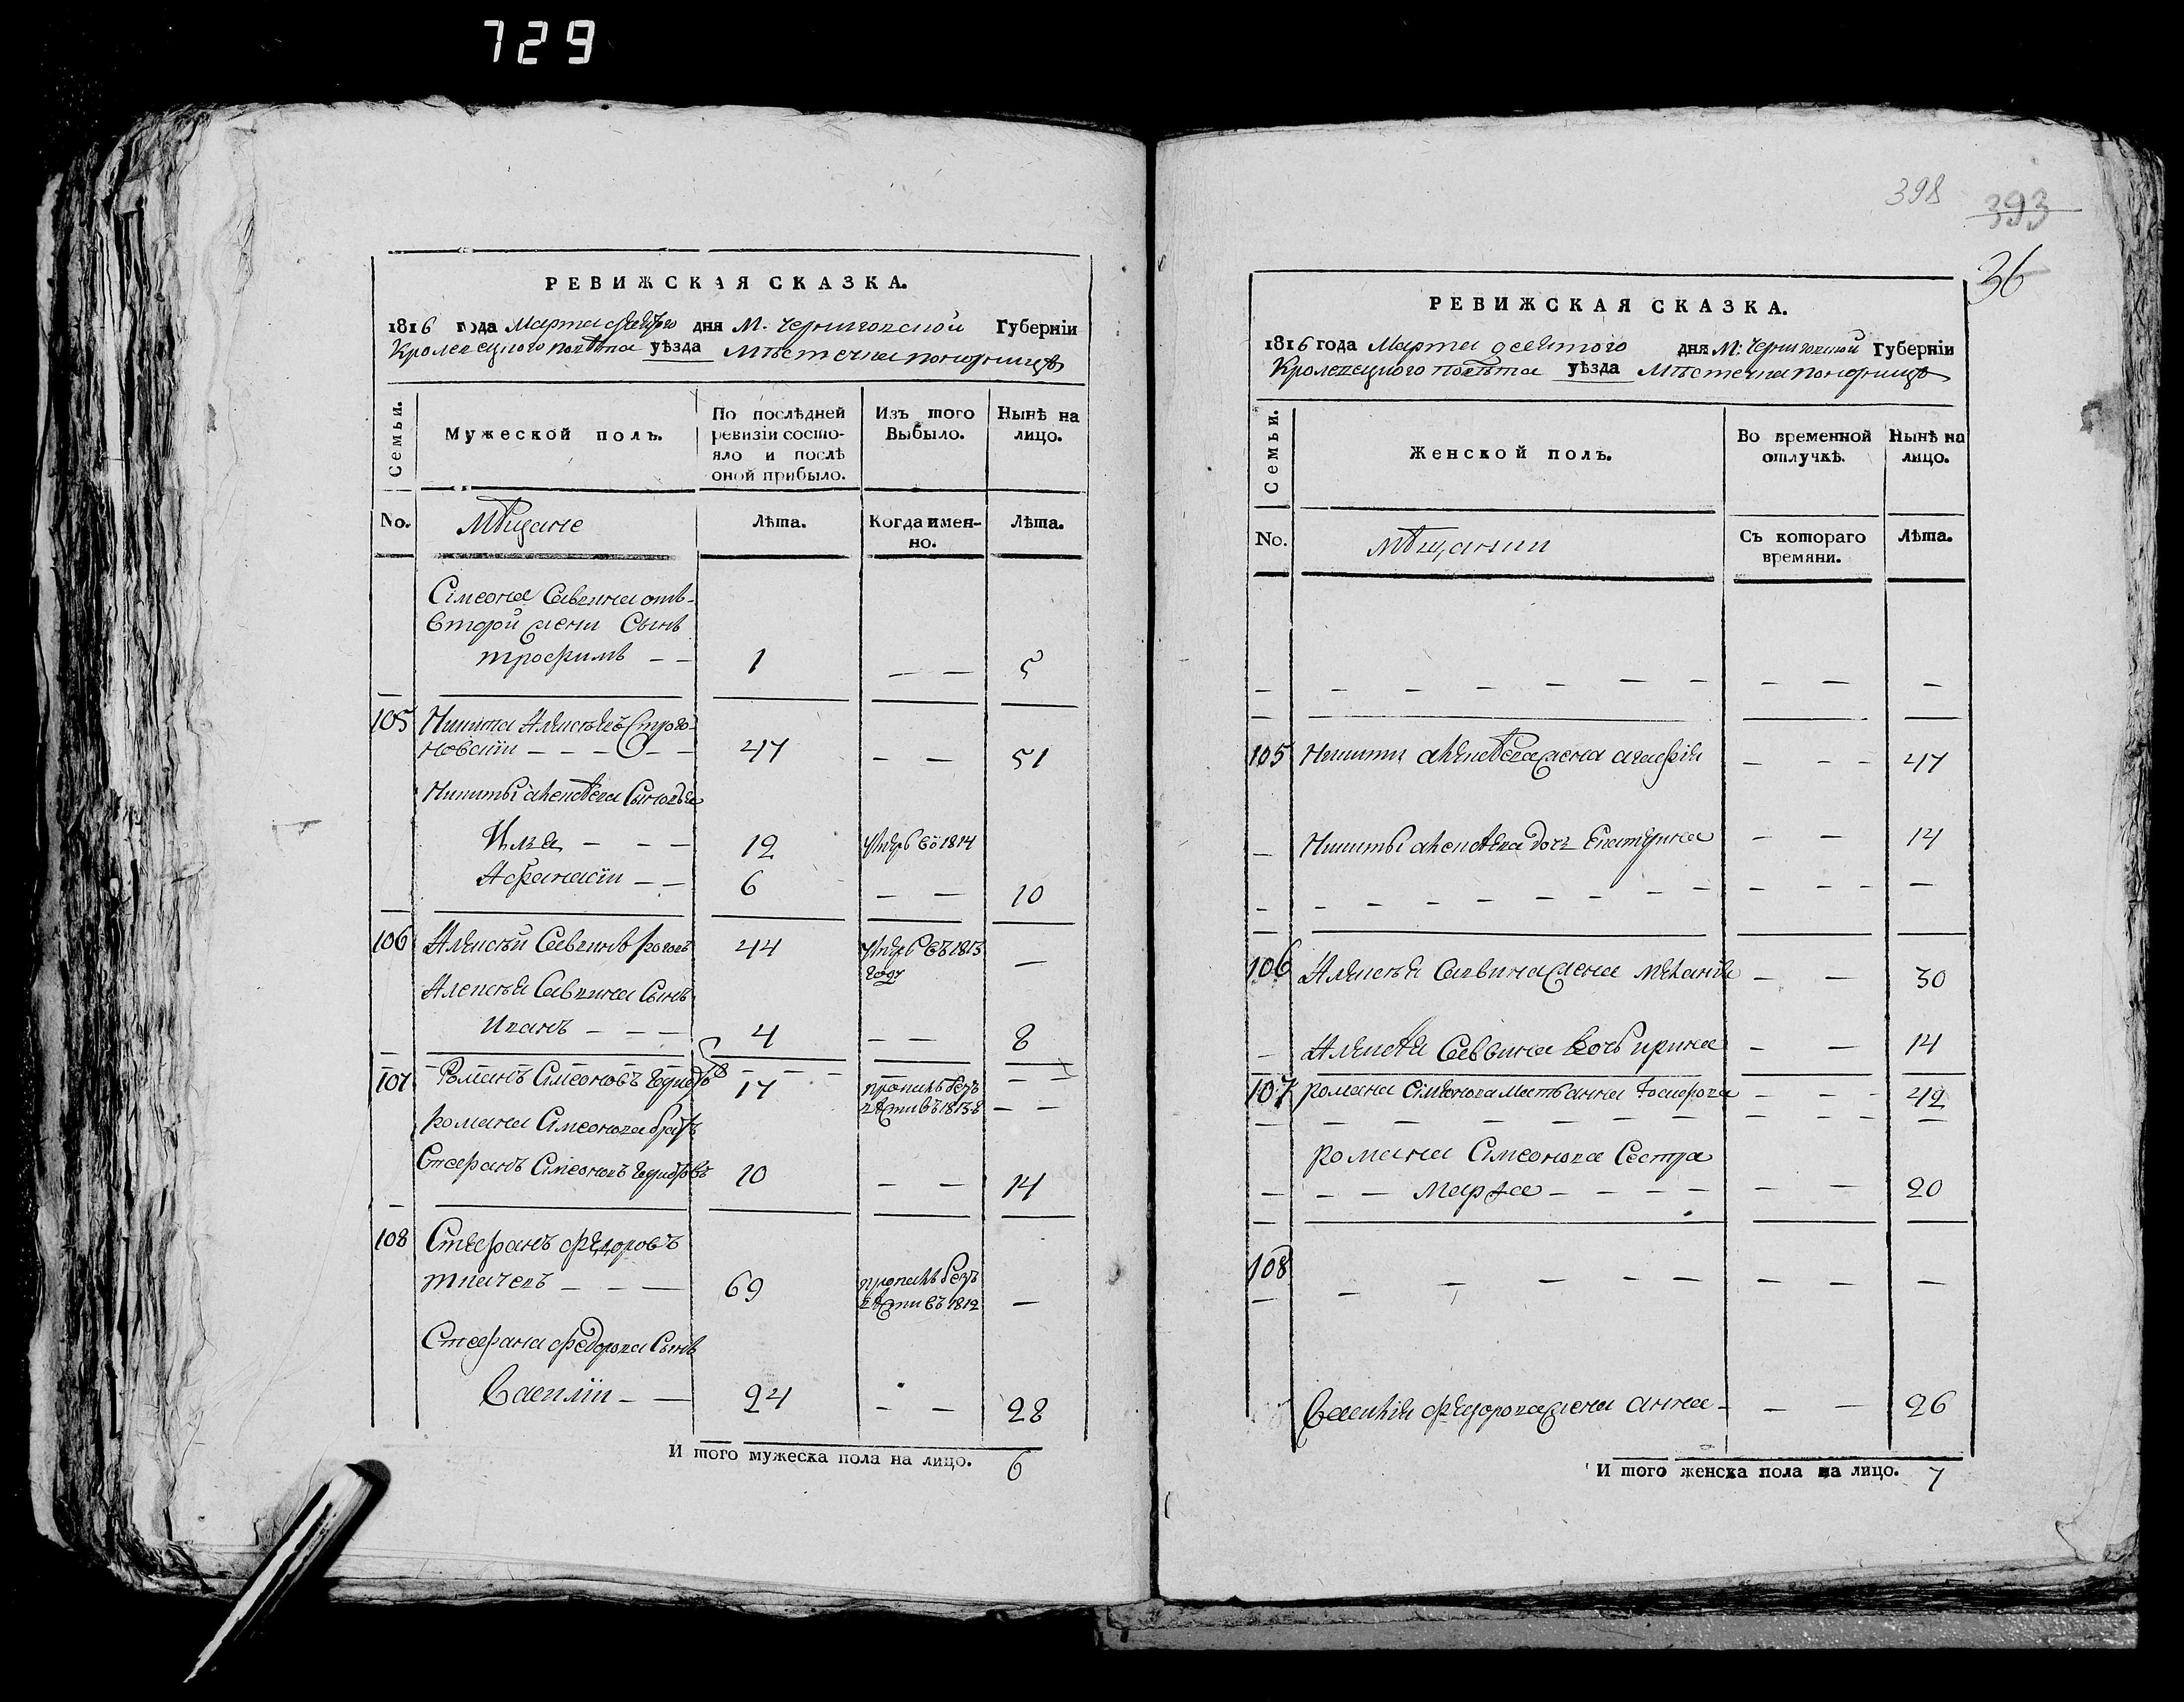 729
РЕВИЖСКАЯ СКАЗКА.
1816 года Марта дня М. Черниговской Губерніи
Кролевецкого повѣта уѣзда Мѣстечка Понорницѣ
Семьи.
Мужеской полъ.
По послѣдней ревизіи состо-
яло и послѣ оной прибыло.
Изъ того Выбыло.
Нынѣ на лицо.
No.
Мѣщане
Лѣта.
Когда имен-
но.
Лѣта.
Сімеона Саввина отъ
второй жени Сынъ
трофимъ — — 1 — — 5
105 Никита Алексѣевъ
51
47
Никиты алексѣева Сыновья
Илья — — — 12 умеръ въ 1814
Афанасіи — — 6 — — 10
106 Алексѣй Саввинъ 44 умеръ въ 1813
году —
Алексѣя Саввина Сынъ
Иванъ — — — 4 — — 8
107 Романъ Сімеоновъ 17 пропалъ безъ
вѣсти въ 1813 — —
Романа Сімеонова братъ
Стефанъ Сімеоновъ 10 — — 14
108 Стефанъ Федоровъ
ткачевъ — — — 69 пропалъ безъ
вѣсти въ 1812 —
Стефана Федорова Сынъ
Василіи — — 24 — — 28
И того мужеска пола на лицо. 6
398 393
36
РЕВИЖСКАЯ СКАЗКА.
1816 года Марта десятого дня М. Черниговской Губерніи
Кролевецкого повѣта уѣзда Мѣстечка Понорницѣ
Семьи.
Женской полъ.
Во временной отлучкѣ.
Нынѣ на лицо.
No.
Мѣщанки
Съ котораго времяни.
Лѣта.
— — — — — — — — — —
105 Никиты алексѣева жена агафія — — — 47
— Никиты алексѣева дочь Екатерина — — 14
— — — — — — — — — — — — —
106 Алексѣя Саввина жена Меланія — — 30
— Алексѣя Саввина дочь ирина — — 14
107 Романа Сімеонова мать анна — — — 42
— — — — — — — — — — — —
Романа Сімеонова Сестра
— — — Марфа — — — — — — 20
108 — — — — — — — —
Василія Федорова жена анна — — — 26
И того женска пола на лицо. 7